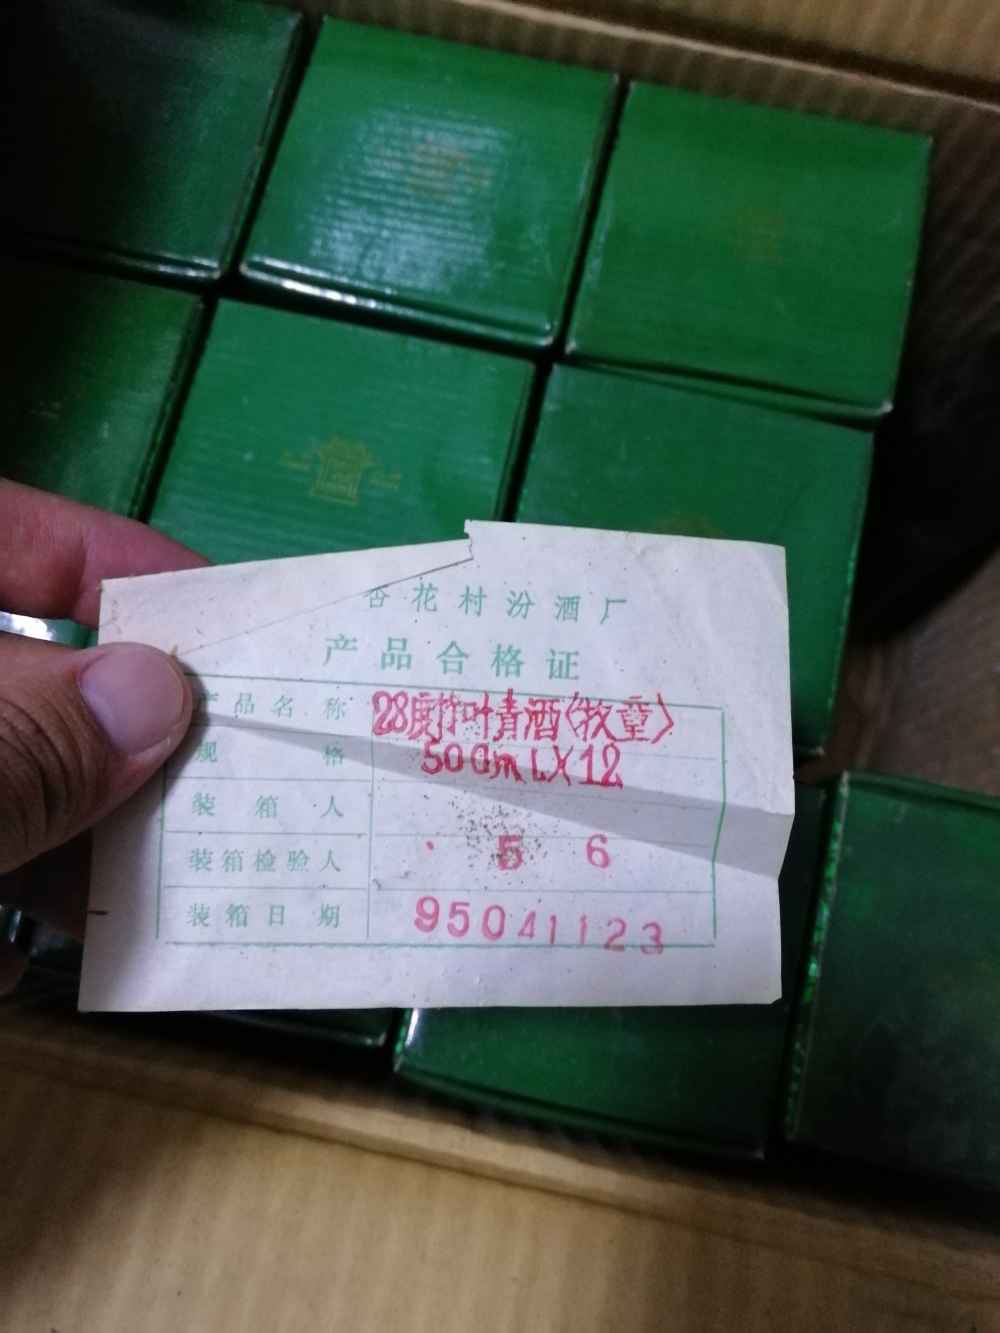 杏花村汾酒厂
产品合格证
产品名称 28度竹叶青酒〈牧童〉
规格 500mL×12
装箱人
装箱检验人 5 6
装箱日期 95041123